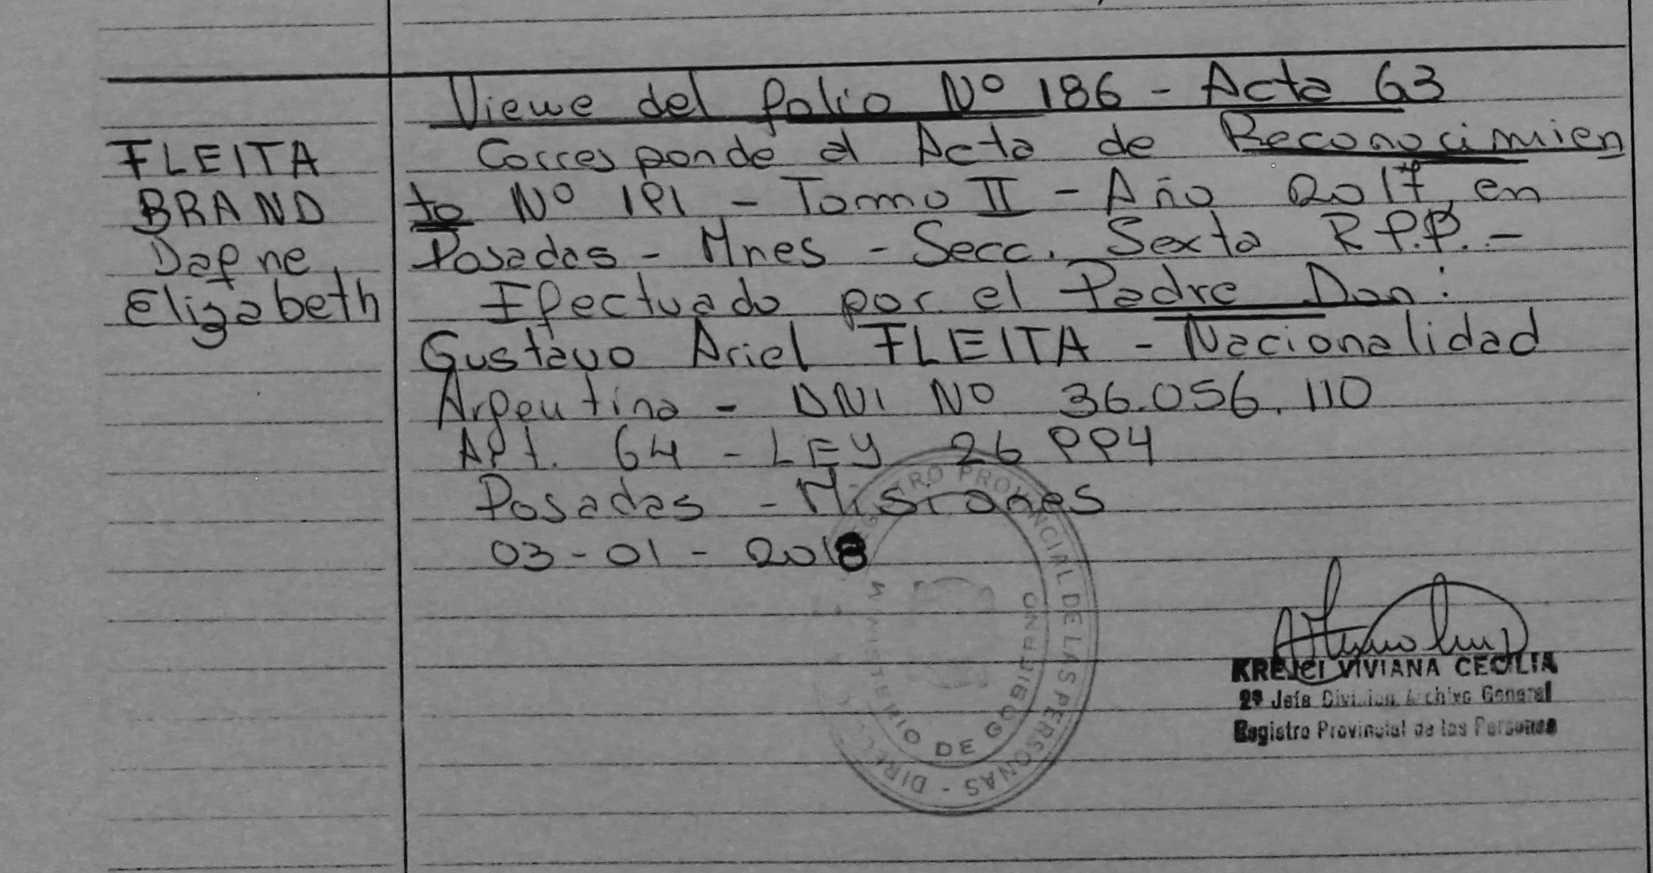 FLEITA
BRAND
Dafne
Elizabeth
Viene del folio Nº 186 - Acta 63
Corresponde al Acta de Reconocimien
to Nº 191 - Tomo II - Año 2017, en
Posadas - Mnes - Secc. Sexta R.P.P. -
Efectuado por el Padre Don:
Gustavo Ariel FLEITA - Nacionalidad
Argentina - DNI Nº 36.056.110
Art. 64 - LEY 26994
Posadas - Misiones
03-01-2018
REGISTRO PROVINCIAL DE LAS PERSONAS
MINISTERIO DE GOBIERNO
KREJCI VIVIANA CECILIA
2º Jefe Division Archivo General
Registro Provincial de las Personas